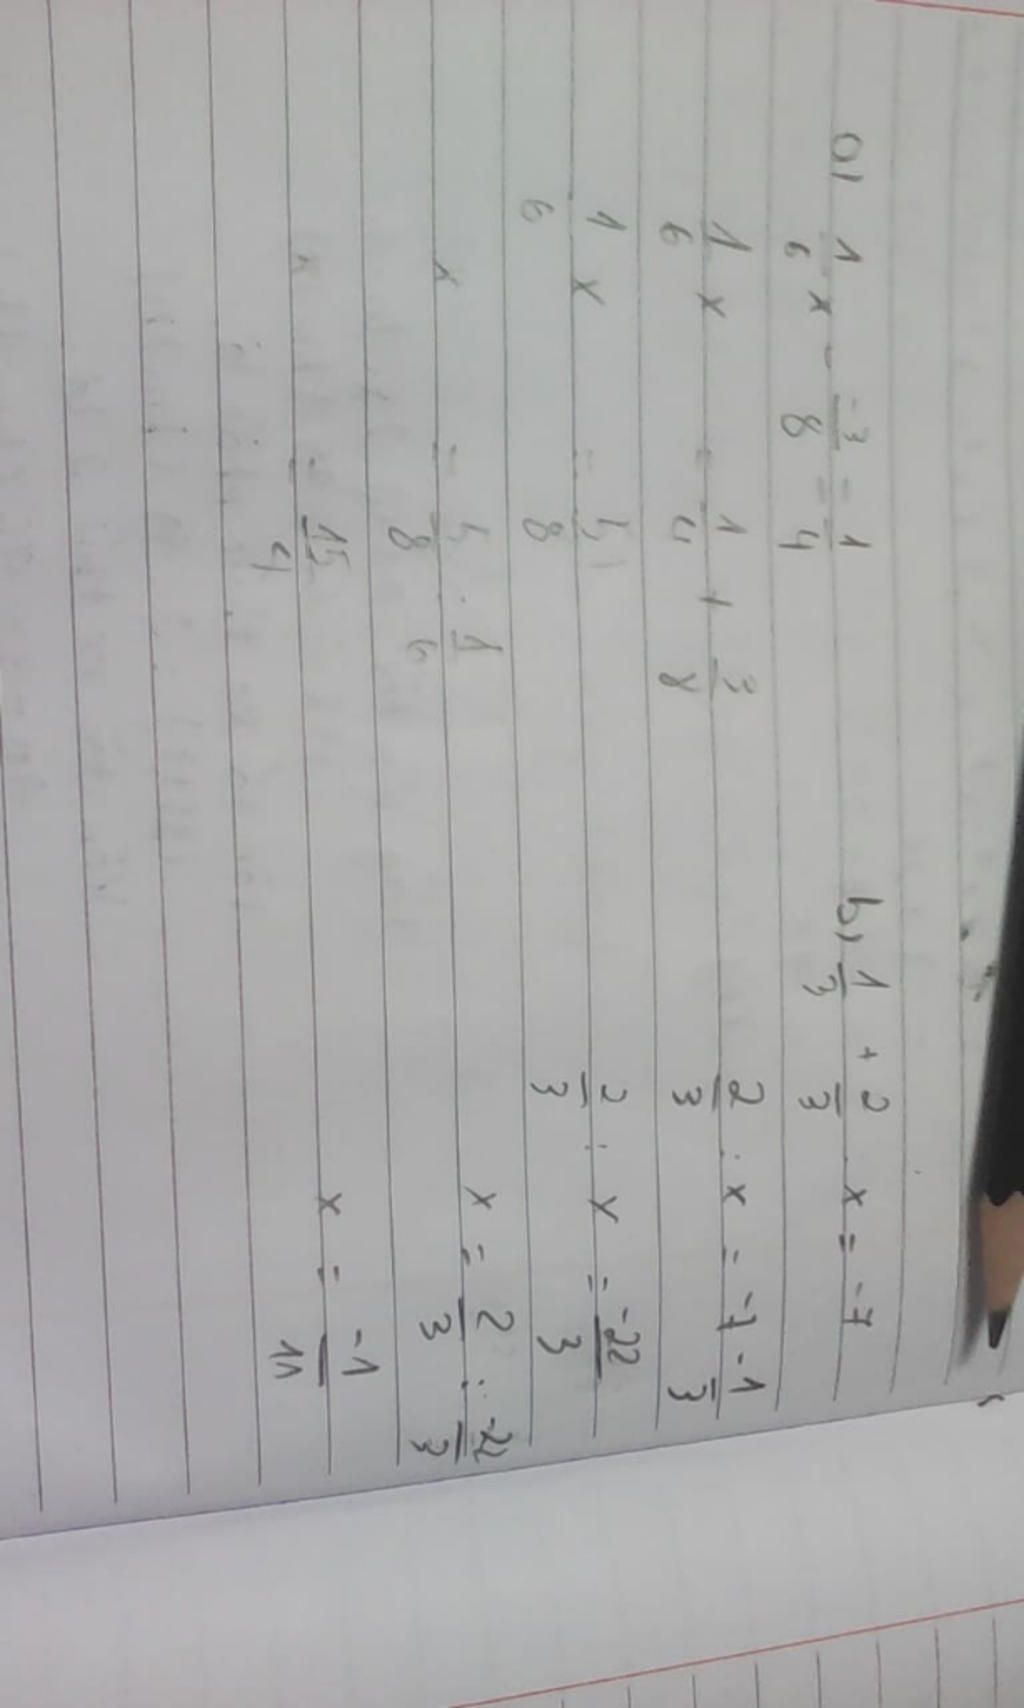 a) 1/6 x - -3/8 = 1/4
1/6 x = 1/4 + 3/8
1/6 x = 5/8
x = 5/8 : 1/6
x = 15/4
b) 1/3 + 2/3 : x = -7
2/3 : x = -7 - 1/3
2/3 : x = -22/3
x = 2/3 : -22/3
x = -1/11